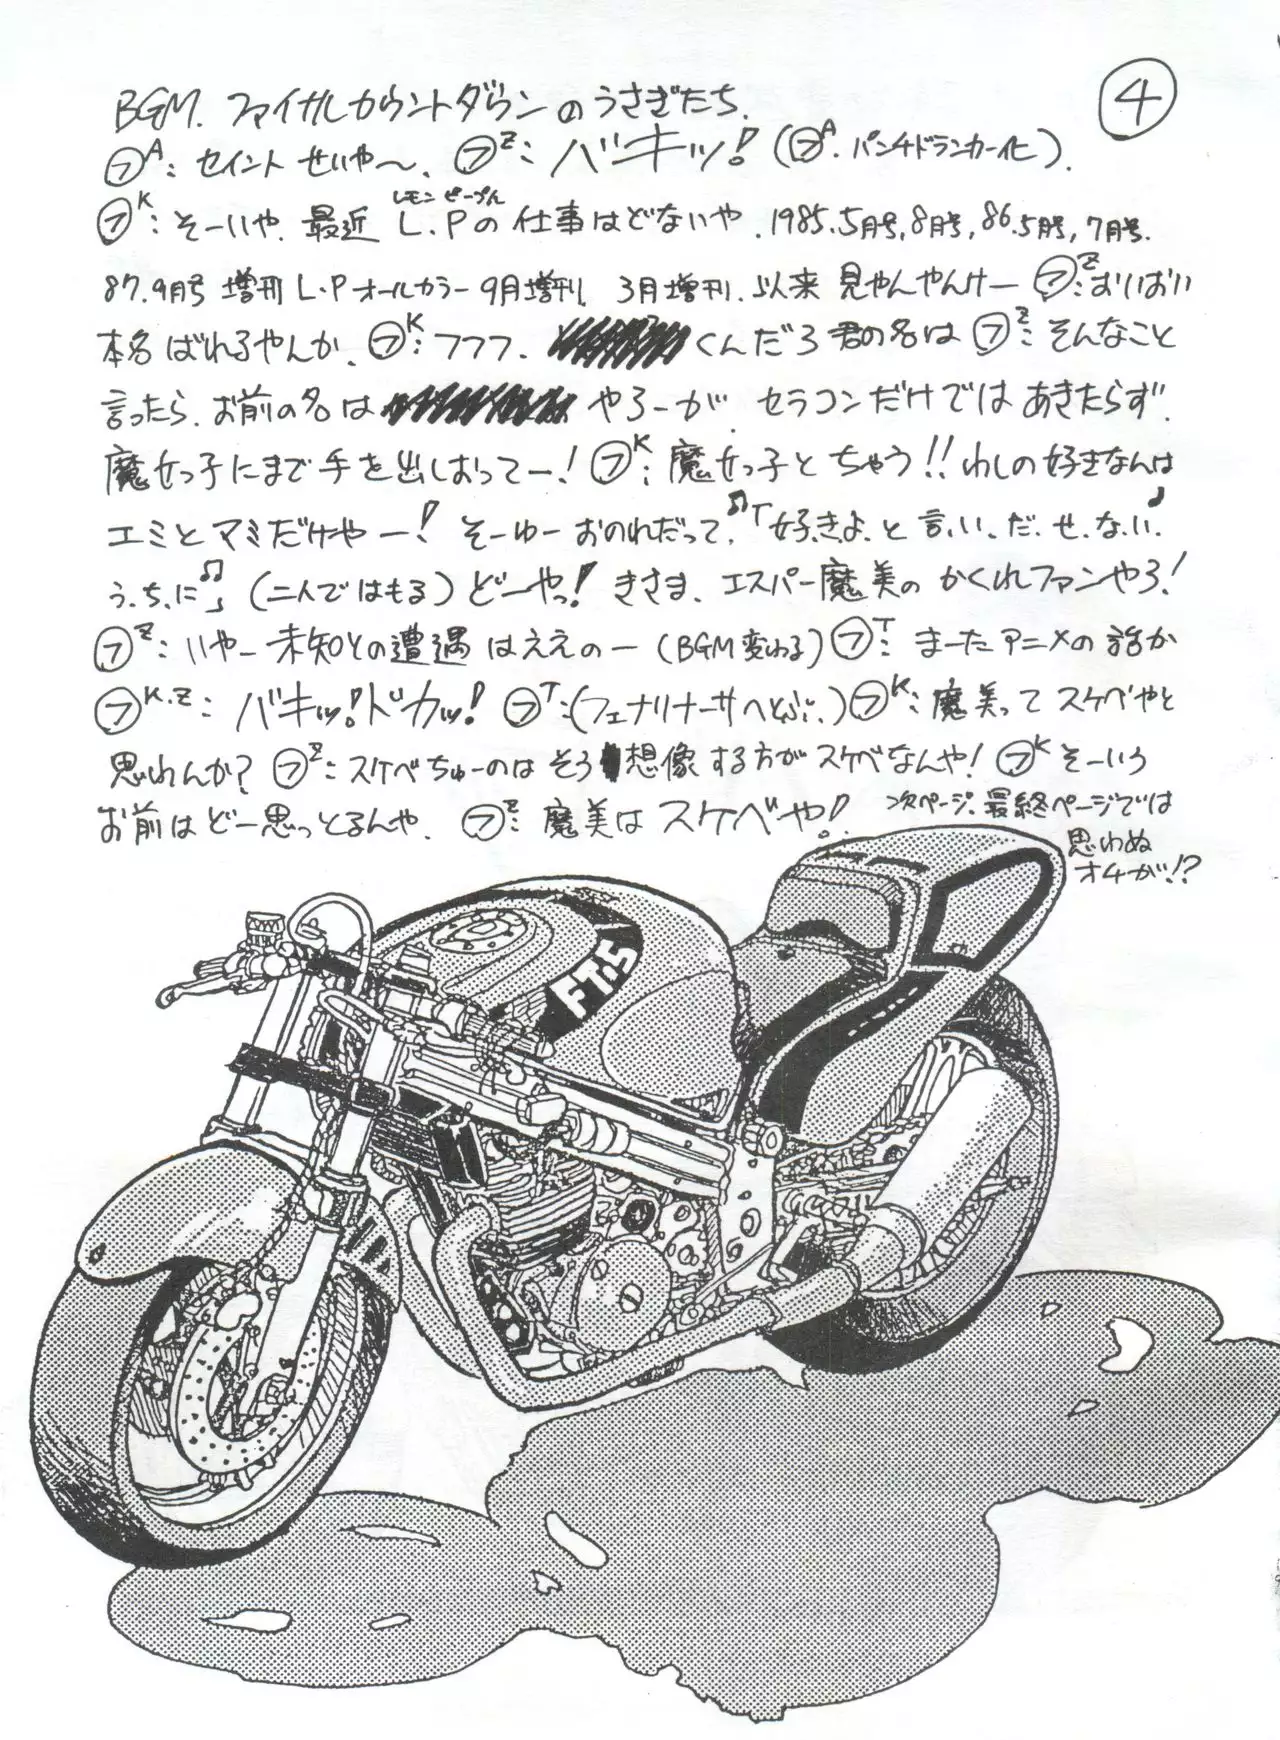 ④
BGM. ファイナルカウントダウンのうさぎたち.
㋫A: セイントせいや〜、 ㋫Z: バキッ! (㋫A. パンチドランカー化).
レモンピープル
㋫K: そーいや. 最近 L.Pの仕事はどないや. 1985.5月号, 8月号, 86.5月号, 7月号.
87.9月号 増刊 L.Pオールカラー 9月増刊 3月増刊. 以来 見やんやんけー ㋫Z: おいおい
本名ばれるやんか. ㋫K: フフフ. くんだろ君の名は ㋫Z: そんなこと
言ったら. お前の名は やろーが. セラコンだけではあきたらず.
魔女っ子にまで手を出しおってー! ㋫K: 魔女っ子とちゃう!! わしの好きなんは
エミとマミだけやー! そーゆーおのれだって, ♫「好.きよ.と言.い.だ.せ.な.い.♪
う.ち.に♫」(二人ではもる) どーやっ! きさま. エスパー魔美のかくれファンやろ!
㋫Z: いやー未知との遭遇はええのー (BGM変わる) ㋫T: まーたアニメの話か
㋫K.Z: バキッ! ドカッ! ㋫T: (フェナリナーサへとぶ.) ㋫K: 魔美ってスケベやと
思わんか? ㋫Z: スケベちゅーのはそう想像する方がスケベなんや! ㋫K そーいう
お前はどー思っとるんや. ㋫Z: 魔美はスケベや!
次ページ. 最終ページでは
思わぬ
オチが!?
FT.S